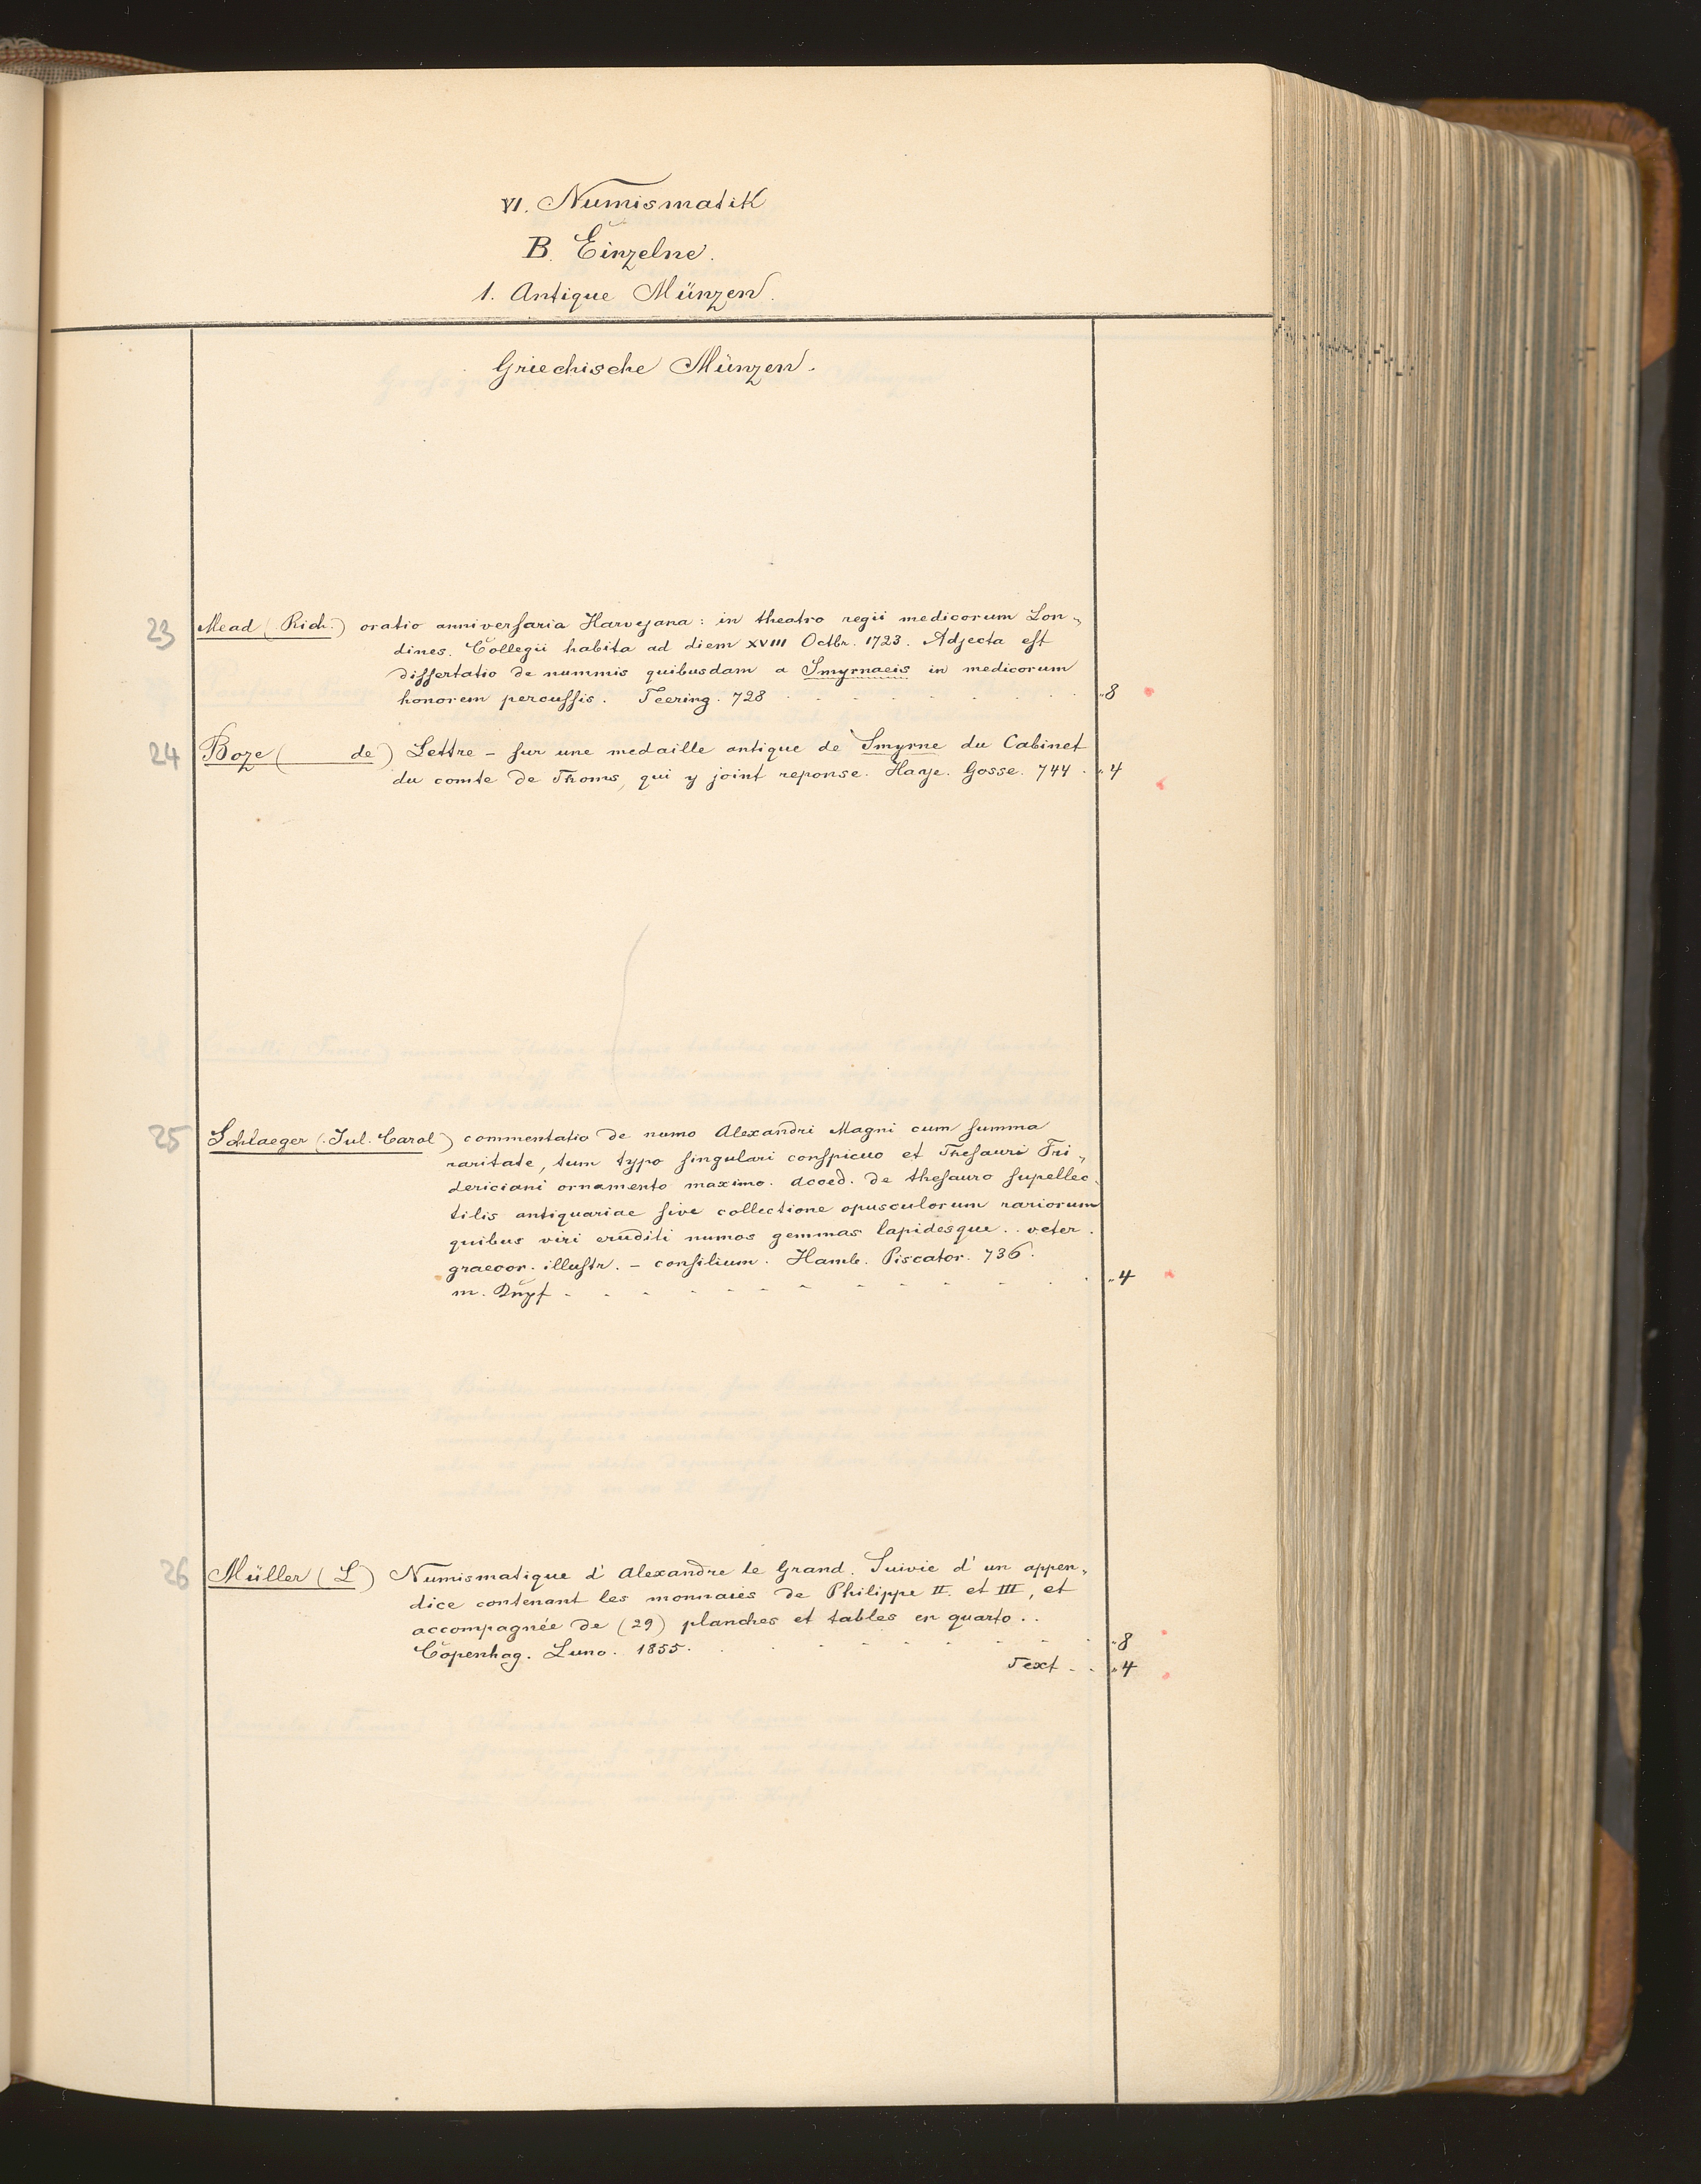 VI. Numismatik
B. Einzelne.
1. Antique Münzen.
Griechische Münzen.
23 Mead (Rich.) oratio anniverſaria Harveyana: in theatro regii medicorum Lon„
dines. Collegii habita ad diem XVIII Octbr. 1723. Adjecta eſt
diſſertatio de nummis quibusdam a Smyrnaeis in medicorum
honorem percuſſis. Teering. 728 . . . . . . . „8
24 Boze ( de) Lettre – ſur une medaille antique de Smyrne du Cabinet
du comte de Thoms, qui y joint reponse. Haye. Gosse. 744 . „4
25 Schlaeger (Jul. Carol) commentatio de numo Alexandri Magni cum ſumma
raritate, tum typo ſingulari conſpicuo et Theſauri Fri„
dericiani ornamento maximo. acced. de theſauro ſupellec„
tilis antiquariae ſive collectione opusculorum rariorum
quibus viri eruditi numos gemmas lapidesque . . veter.
graecor. illuſtr. – conſilium. Hamb. Piscator. 736.
m. Kupf - - - - - - - - - - . . „4
26 Müller (L) Numismatique d'Alexandre le Grand. Suivie d'un appen„
dice contenant les monnaies de Philippe II. et III, et
accompagnée de (29) planches et tables en quarto . .
Copenhag. Luno. 1855. . . - - - - - - . „8
Text . . „4